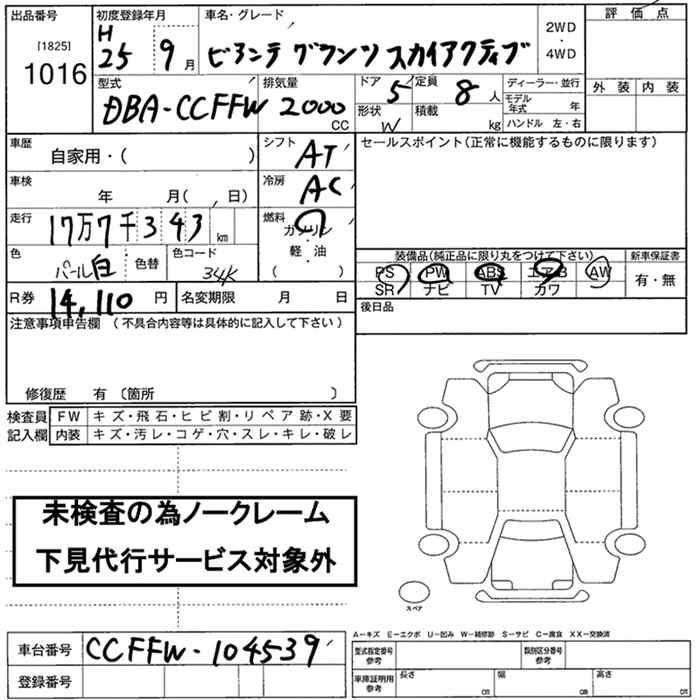 出品番号
[1825]
1016
初度登録年月
H
25 9月
車名・グレード
ビアンテ グランツ スカイアクティブ
2WD
・
4WD
評価点
外装 内装
型式
DBA-CCFFW
排気量
2000
CC
ドア
5
定員
8人
形状
W
積載
kg
ディーラー・並行
モデル
年式 年
ハンドル 左・右
車歴
自家用・( )
シフト
AT
セールスポイント(正常に機能するものに限ります)
車検
年 月( , 日)
冷房
AC
走行
17万7千343km
燃料
ガソリン
・
軽・油
( )
色
パール白
色替
色コード
34K
装備品(純正品に限り丸をつけて下さい)
PS PW ABS エアB AW
SR ナビ TV カワ
新車保証書
有・無
R券
14,110円
名変期限 月 日
後日品
注意事項申告欄 (不具合内容等は具体的に記入して下さい)
修復歴 有 (箇所 )
検査員
記入欄
FW キズ・飛石・ヒビ割・リペア跡・X要
内装 キズ・汚レ・コゲ・穴・スレ・キレ・破レ
未検査の為ノークレーム
下見代行サービス対象外
スペア
A−キズ E−エクボ U−凹み W−補修跡 S−サビ C−腐食 XX−交換済
車台番号
CCFFW-104539
登録番号
型式指定番号
参考
類別区分番号
参考
車庫証明用
参考
長さ
cm
幅
cm
高さ
cm